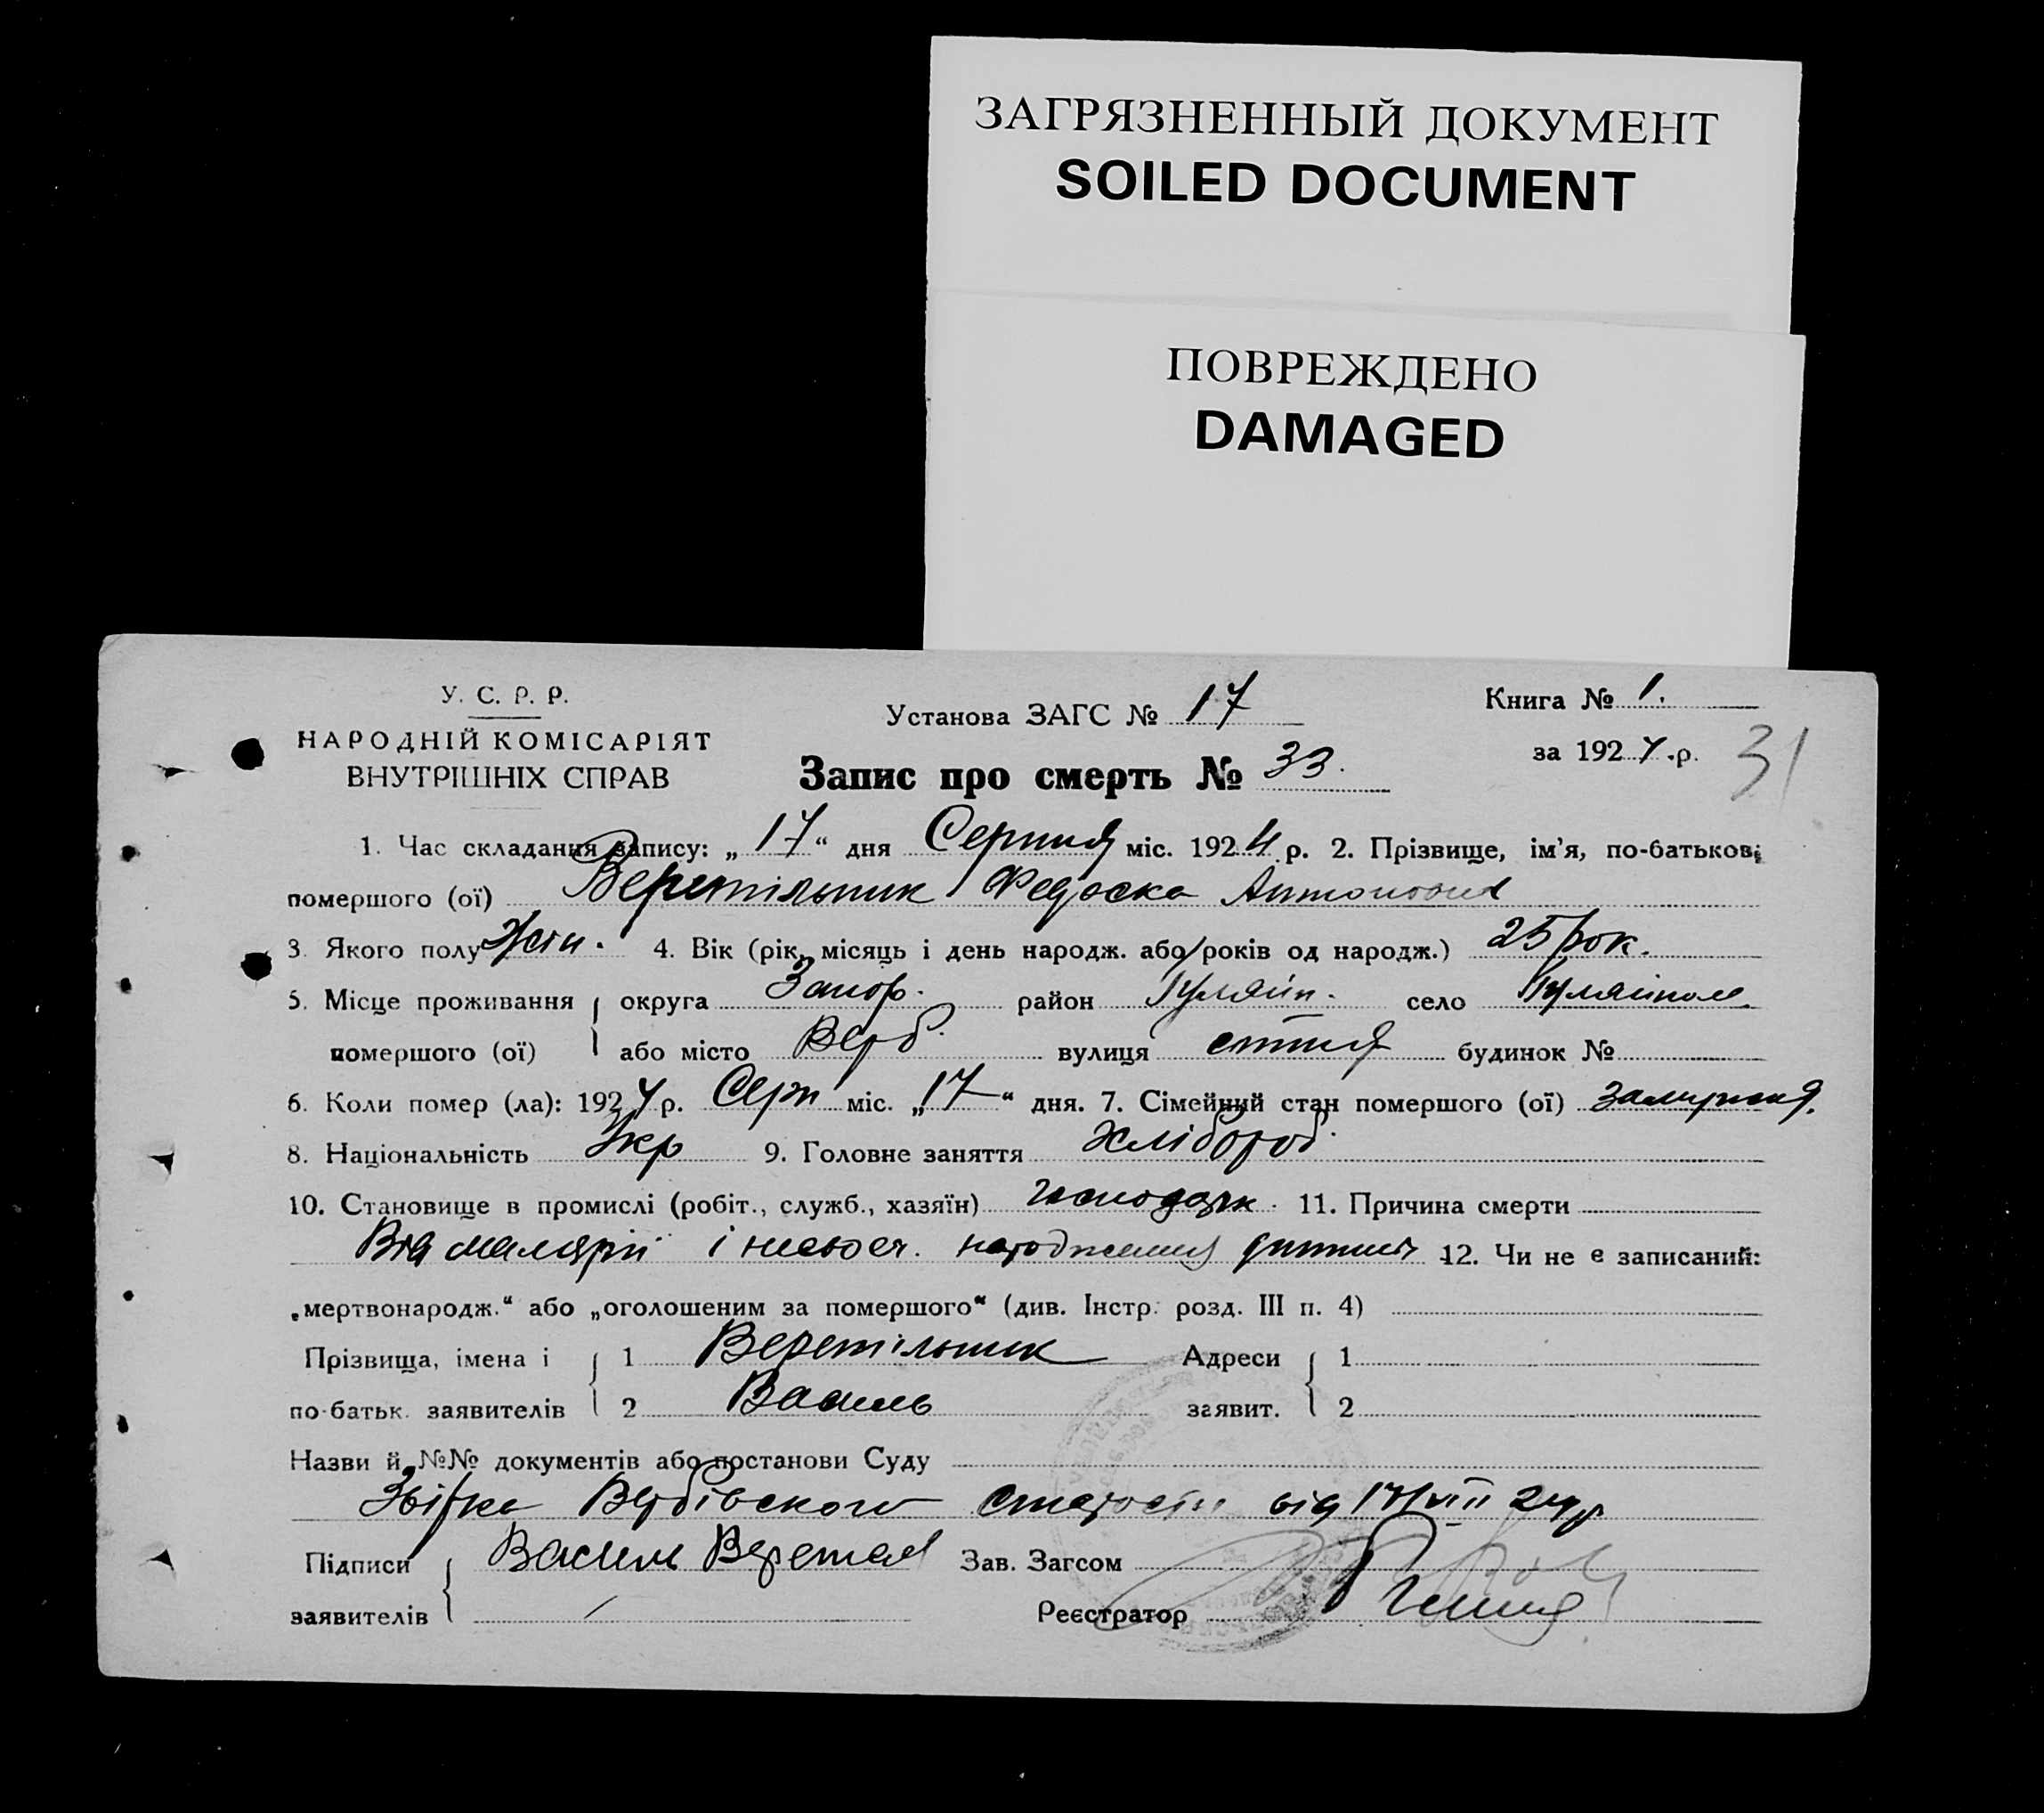 ЗАГРЯЗНЕННЫЙ ДОКУМЕНТ
SOILED DOCUMENT
ПОВРЕЖДЕНО
DAMAGED
У. С. Р. Р.
НАРОДНІЙ КОМІСАРІЯТ
ВНУТРІШНІХ СПРАВ
Установа ЗАГС № 17
Книга № 1.
за 1924 р.
31
Запис про смерть № 33.
1. Час складання запису: „17“ дня Серпня міс. 1924 р. 2. Прізвище, ім’я, по-батькові
помершого (ої) Веретільник Федоска Антоновна
3. Якого полу Жін. 4. Вік (рік, місяць і день народж. або років од народж.) 25 рок.
5. Місце проживання округа Запор. район Гуляйп. село Гуляйполе
помершого (ої) або місто Верб. вулиця будинок №
6. Коли помер (ла): 1924 р. Серп міс. „17“ дня. 7. Сімейний стан помершого (ої) замужня.
8. Національність Укр 9. Головне заняття Хлібороб.
10. Становище в промислі (робіт., служб., хазяїн) 11. Причина смерти
Від малярії і народження дитини 12. Чи не є записаний:
„мертвонародж.“ або „оголошеним за помершого“ (див. Інстр. розд. III п. 4)
Прізвища, імена і 1 Веретільник Адреси 1
по-батьк. заявителів 2 Василь заявит. 2
Назви й №№ документів або постанови Суду
Вербівского старости від 17/VIII 24 р
Підписи Василь Зав. Загсом
заявителів Реєстратор